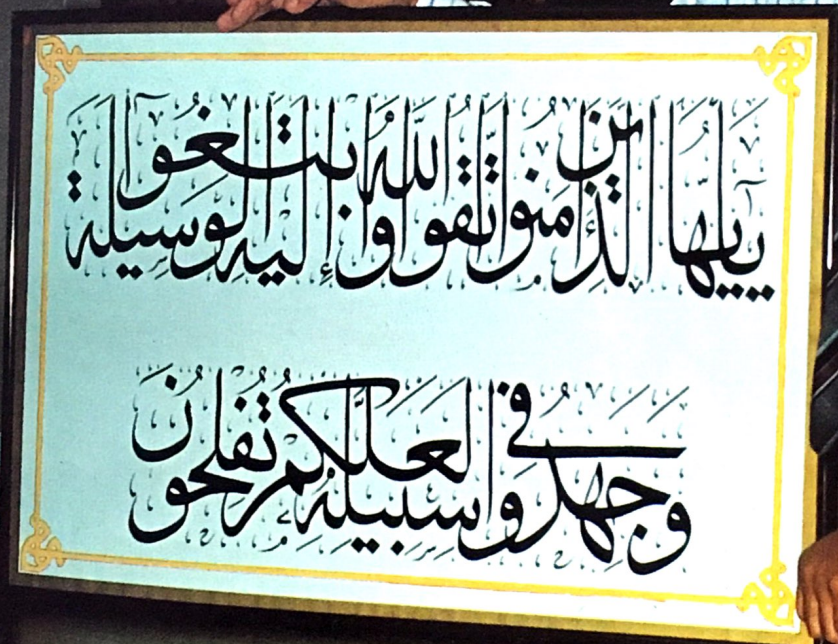 يٰٓأَيُّهَا الَّذِينَ ءَامَنُوا اتَّقُوا اللّٰهَ وَابْتَغُوا إِلَيْهِ الْوَسِيلَةَ
وَجٰهِدُوا فِى سَبِيلِهِ لَعَلَّكُمْ تُفْلِحُونَ